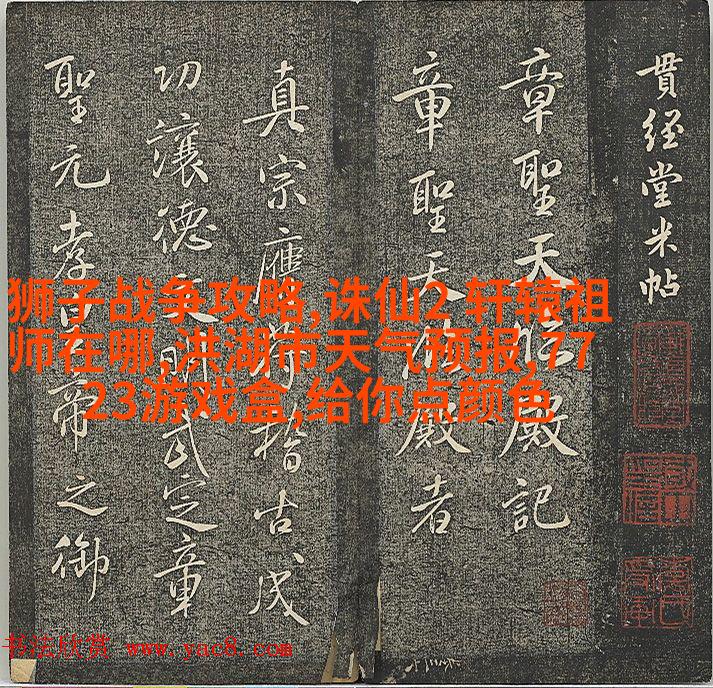 貫經堂米帖
章聖天臨殿記
章聖天臨殿者
真宗應符稽古成
功讓德文明武定章
聖元孝皇帝之御
狮子战争攻略,诛仙2 轩辕祖
师在哪,洪湖市天气预报,77
23游戏盒,给你点颜色
书法欣赏 www.yac8.com